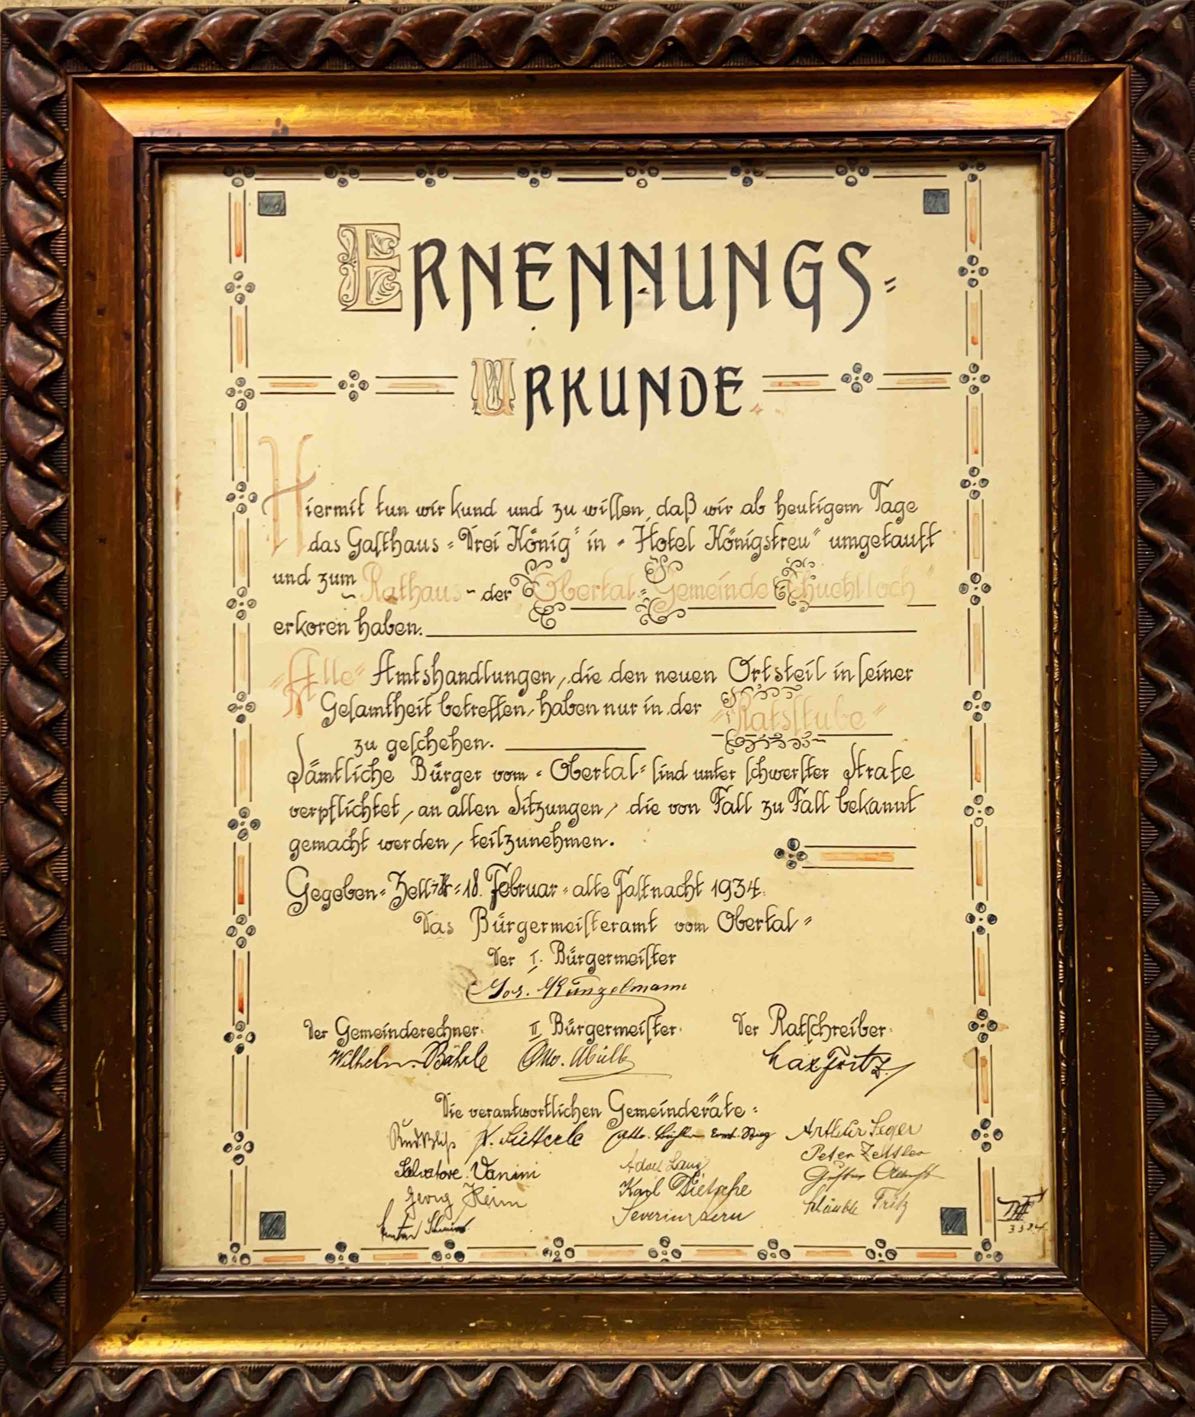 ERNENNUNGS=
URKUNDE.
Hiermit tun wir kund und zu wissen, daß wir ab heutigem Tage
das Gasthaus "Drei König" in "Hotel Königstreu" umgetauft
und zum Rathaus der "Obertal-Gemeinde
erkoren haben.
"Alle" Amtshandlungen, die den neuen Ortsteil in seiner
Gesamtheit betreffen, haben nur in der "Ratsstube"
zu geschehen.
Sämtliche Bürger vom "Obertal" sind unter schwerster Strafe
verpflichtet, an allen Sitzungen, die von Fall zu Fall bekannt
gemacht werden, teilzunehmen.
Gegeben = Zell 18. Februar = alte Fastnacht 1934.
Das Bürgermeisteramt vom Obertal =
Der I. Bürgermeister
Jos. Künzelmann
Der Gemeinderechner. II Bürgermeister. Der Ratschreiber.
Wilhelm Bährle Otto Max Fritz
Die verantwortlichen Gemeinderäte =
Arthur Seger
Salvatore Vanini Adolf Lang Peter
Georg Heim Karl Dietsche
Severin Kern Fritz